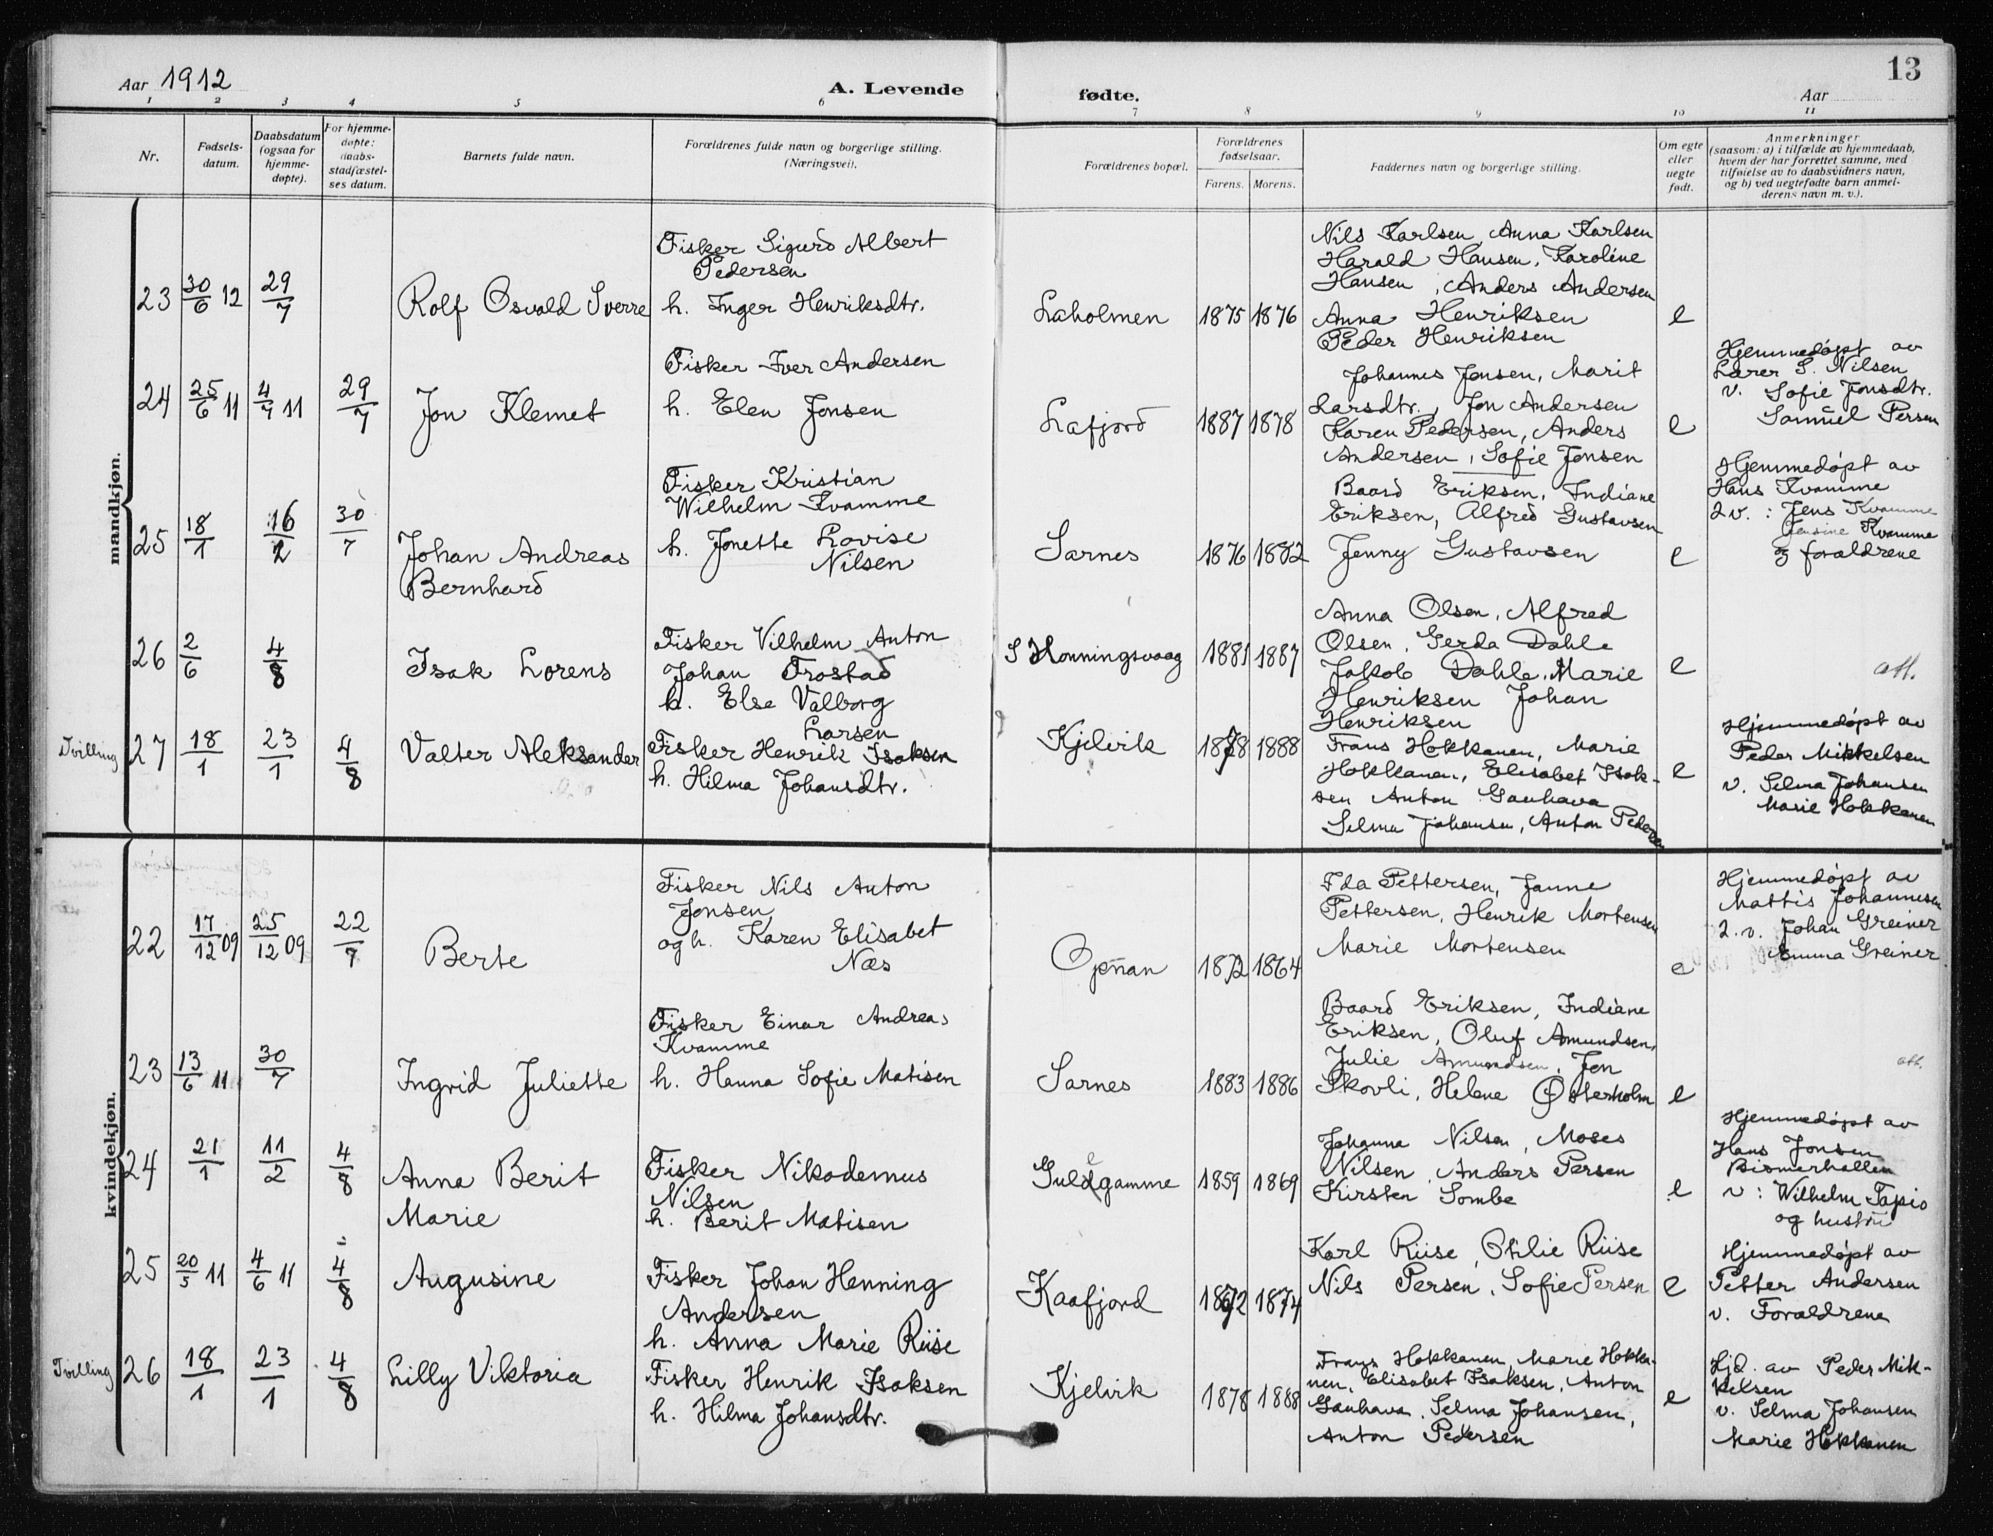 13
Aar 1912
A. Levende
fødte.
Aar
1 2 3 4 5 6 7 8 9 10 11
Nr.
Fødsels-
datum.
Daabsdatum
(ogsaa for
hjemme-
døpte).
For hjemme-
døpte:
daabs-
stadfæstel-
ses datum.
Barnets fulde navn.
Forældrenes fulde navn og borgerlige stilling.
(Næringsvei).
Forældrenes bopæl.
Forældrenes
fødselsaar.
Farens. Morens.
Faddernes navn og borgerlige stilling.
Om egte
eller
uegte
født.
Anmerkninger
(saasom: a) i tilfælde av hjemmedaab,
hvem der har forrettet samme, med
tilføielse av to daabsvidners navn,
og b) ved uegtefødte barn anmel-
derens navn m. v.).
mandkjøn.
23 30/6 12 29/7
Rolf Osvald Sverre
Fisker Sigurd Albert
Pedersen
h. Inger Henriksdtr.
Laholmen 1875 1876
Nils Karlsen, Anna Karlsen
Harald Hansen, Karoline
Hansen, Anders Andersen
Anna Henriksen
Peder Henriksen
e
24 25/6 11 4/7 11 29/7
Jon Klemet
Fisker Iver Andersen
h. Elen Jonsen
Lafjord 1887 1878
Johannes Jensen, Marit
Larsdtr., Jon Andersen
Karen Pedersen, Anders
Andersen, Sofie Jonsen
e
Hjemmedøpt av
Lærer S. Nilsen
v. Sofie Jonsdtr.
Samuel Persen
25 18/1 16/2 30/7
Johan Andreas
Bernhard
Fisker Kristian
Wilhelm Kvamme
h. Jonette Lovise
Nilsen
Sarnes 1876 1882
Baard Eriksen, Indiane
Eriksen, Alfred Gustavsen
Jenny Gustavsen
e
Hjemmedøpt av
Hans Kvamme
2 v. : Jens Kvamme
Jensine Kvamme
og forældrene
26 2/6 4/8
Isak Lorens
Fisker Vilhelm Anton
Johan Frostad
h. Else Valborg
Larsen
S Honningsvaag 1881 1887
Anna Olsen, Alfred
Olsen, Gerda Dahle
Jakob Dahle, Marie
Henriksen Johan
Henriksen
e
att.
Tvilling 27 18/1 23/1 4/8
Valter Aleksander
Fisker Henrik Isaksen
h. Hilma Johansdtr.
Kjelvik 1878 1888
Frans Hokkanen, Marie
Hokkanen, Elisabet Isak-
sen Anton Gauhava
Selma Johansen, Anton Pedersen
e
Hjemmedøpt av
Peder Mikkelsen
v. Selma Johansen
Marie Hokkanen
kvindekjøn.
22 17/12 09 25/12 09 22/9
Berte
Fisker Nils Anton
Jonsen
og h. Karen Elisabet
Næs
Opnan 1872 1864
Ida Pettersen, Janne
Pettersen, Henrik Mortensen
Marie Mortensen
e
Hjemmedøpt av
Mattis Johannesen
2. v. Johan Greiner
Emma Greiner
23 13/6 11 30/7
Ingrid Juliette
Fisker Einar Andreas
Kvamme
h. Hanna Sofie Matisen
Sarnes 1883 1886
Baard Eriksen, Indiane
Eriksen, Oluf Amundsen,
Julie Amundsen, Jon
Skovli, Helene Østerholm
e
att.
24 21/1 11/2 4/8
Anna Berit
Marie
Fisker Nikodemus
Nilsen
h. Berit Matisen
Guldgamme 1859 1869
Johanna Nilsen, Moses
Nilsen, Anders Persen
Kirsten Sombe
e
Hjemmedøpt av
Hans Jonsen
Bismerhallen
v : Wilhelm Tapio
og hustru
25 20/5 11 4/6 11 4/8
Augusine
Fisker Johan Henning
Andersen
h. Anna Marie Riise
Kaafjord 1872 1874
Karl Riise, Otilie Riise
Nils Persen, Sofie Persen
e
Hjemmedøpt av
Petter Andersen
v. Forældrene
Tvilling 26 18/1 23/1 4/8
Lilly Viktoria
Fisker Henrik Isaksen
h. Hilma Johansdtr.
Kjelvik 1878 1888
Frans Hokkanen, Marie Hokka-
nen, Elisabet Isaksen, Anton
Gauhava, Selma Johansen,
Anton Pedersen
e
Hjd. av Peder Mik-
kelsen
v. Selma Johansen
Marie Hokkanen